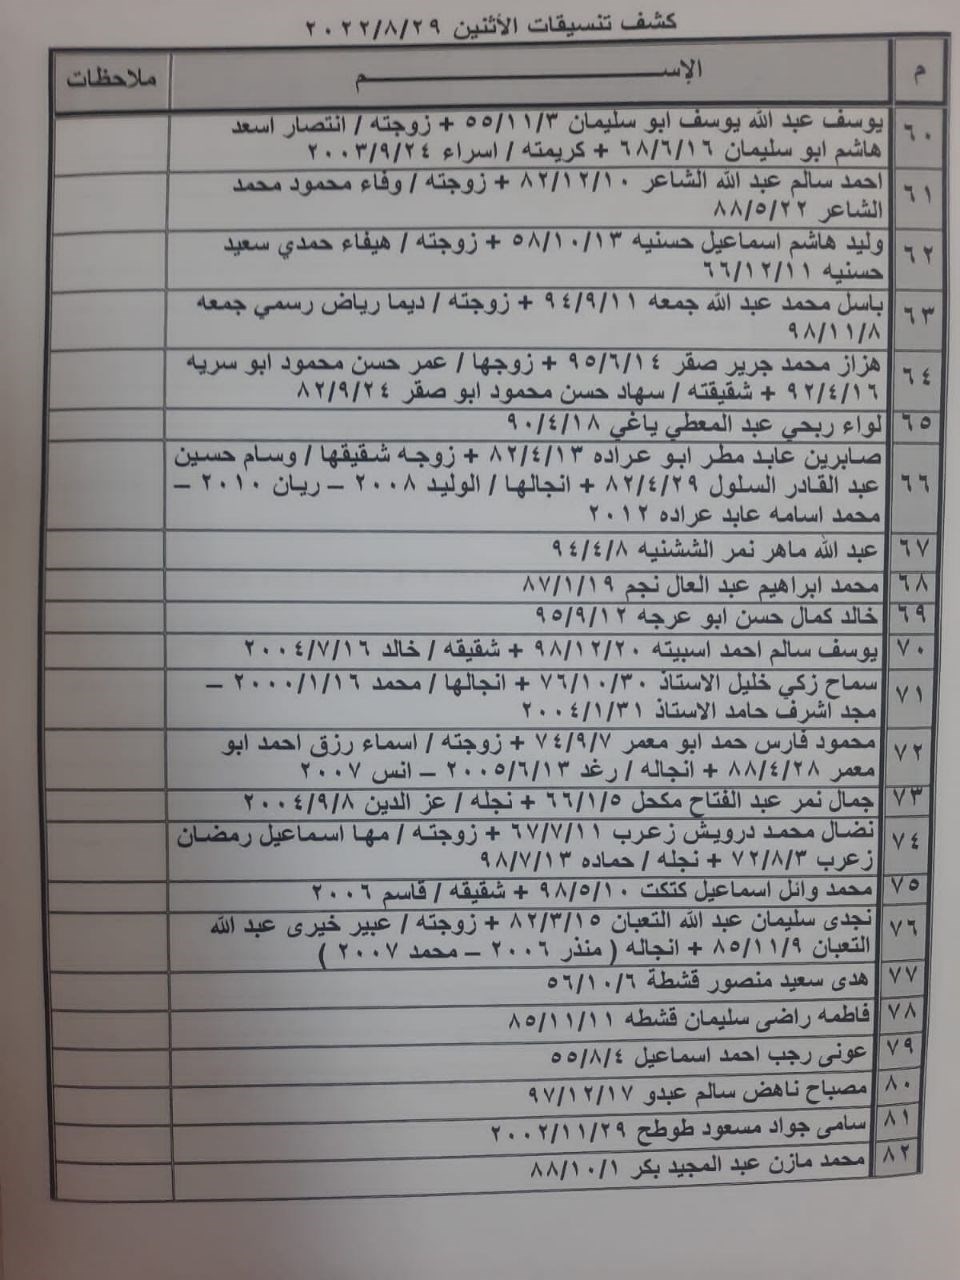 كشف تنسيقات الأثنين ٢٠٢٢/٨/٢٩
م الإســـــــــــــــــم ملاحظات
٦٠ يوسف عبد الله يوسف ابو سليمان ٥٥/١١/٣ + زوجته / انتصار اسعد
هاشم ابو سليمان ٦٨/٦/١٦ + كريمته / اسراء ٢٠٠٣/٩/٢٤
٦١ احمد سالم عبد الله الشاعر ٨٢/١٢/١٠ + زوجته / وفاء محمود محمد
الشاعر ٨٨/٥/٢٢
٦٢ وليد هاشم اسماعيل حسنيه ٥٨/١٠/١٣ + زوجته / هيفاء حمدي سعيد
حسنيه ٦٦/١٢/١١
٦٣ باسل محمد عبد الله جمعه ٩٤/٩/١١ + زوجته / ديما رياض رسمي جمعه
٩٨/١١/٨
٦٤ هزاز محمد جرير صقر ٩٥/٦/١٤ + زوجها / عمر حسن محمود ابو سريه
٩٢/٤/١٦ + شقيقته / سهاد حسن محمود ابو صقر ٨٢/٩/٢٤
٦٥ لواء ربحي عبد المعطي ياغي ٩٠/٤/١٨
٦٦ صابرين عابد مطر ابو عراده ٨٢/٤/١٣ + زوجه شقيقها / وسام حسين
عبد القادر السلول ٨٢/٤/٢٩ + انجالها / الوليد ٢٠٠٨ – ريان ٢٠١٠ –
محمد اسامه عابد عراده ٢٠١٢
٦٧ عبد الله ماهر نمر الششنيه ٩٤/٤/٨
٦٨ محمد ابراهيم عبد العال نجم ٨٧/١/١٩
٦٩ خالد كمال حسن ابو عرجه ٩٥/٩/١٢
٧٠ يوسف سالم احمد اسبيته ٩٨/١٢/٢٠ + شقيقه / خالد ٢٠٠٤/٧/١٦
٧١ سماح زكي خليل الاستاذ ٧٦/١٠/٣٠ + انجالها / محمد ٢٠٠٠/١/١٦ –
مجد اشرف حامد الاستاذ ٢٠٠٤/١/٣١
٧٢ محمود فارس حمد ابو معمر ٧٤/٩/٧ + زوجته / اسماء رزق احمد ابو
معمر ٨٨/٤/٢٨ + انجاله / رغد ٢٠٠٥/٦/١٣ – انس ٢٠٠٧
٧٣ جمال نمر عبد الفتاح مكحل ٦٦/١/٥ + نجله / عز الدين ٢٠٠٤/٩/٨
٧٤ نضال محمد درويش زعرب ٦٧/٧/١١ + زوجته / مها اسماعيل رمضان
زعرب ٧٢/٨/٣ + نجله / حماده ٩٨/٧/١٣
٧٥ محمد وائل اسماعيل كتكت ٩٨/٥/١٠ + شقيقه / قاسم ٢٠٠٦
٧٦ نجدى سليمان عبد الله التعبان ٨٢/٣/١٥ + زوجته / عبير خيرى عبد الله
التعبان ٨٥/١١/٩ + انجاله ( منذر ٢٠٠٦ – محمد ٢٠٠٧ )
٧٧ هدى سعيد منصور قشطة ٥٦/١٠/٦
٧٨ فاطمه راضى سليمان قشطه ٨٥/١١/١١
٧٩ عونى رجب احمد اسماعيل ٥٥/٨/٤
٨٠ مصباح ناهض سالم عبدو ٩٧/١٢/١٧
٨١ سامى جواد مسعود طوطح ٢٠٠٢/١١/٢٩
٨٢ محمد مازن عبد المجيد بكر ٨٨/١٠/١